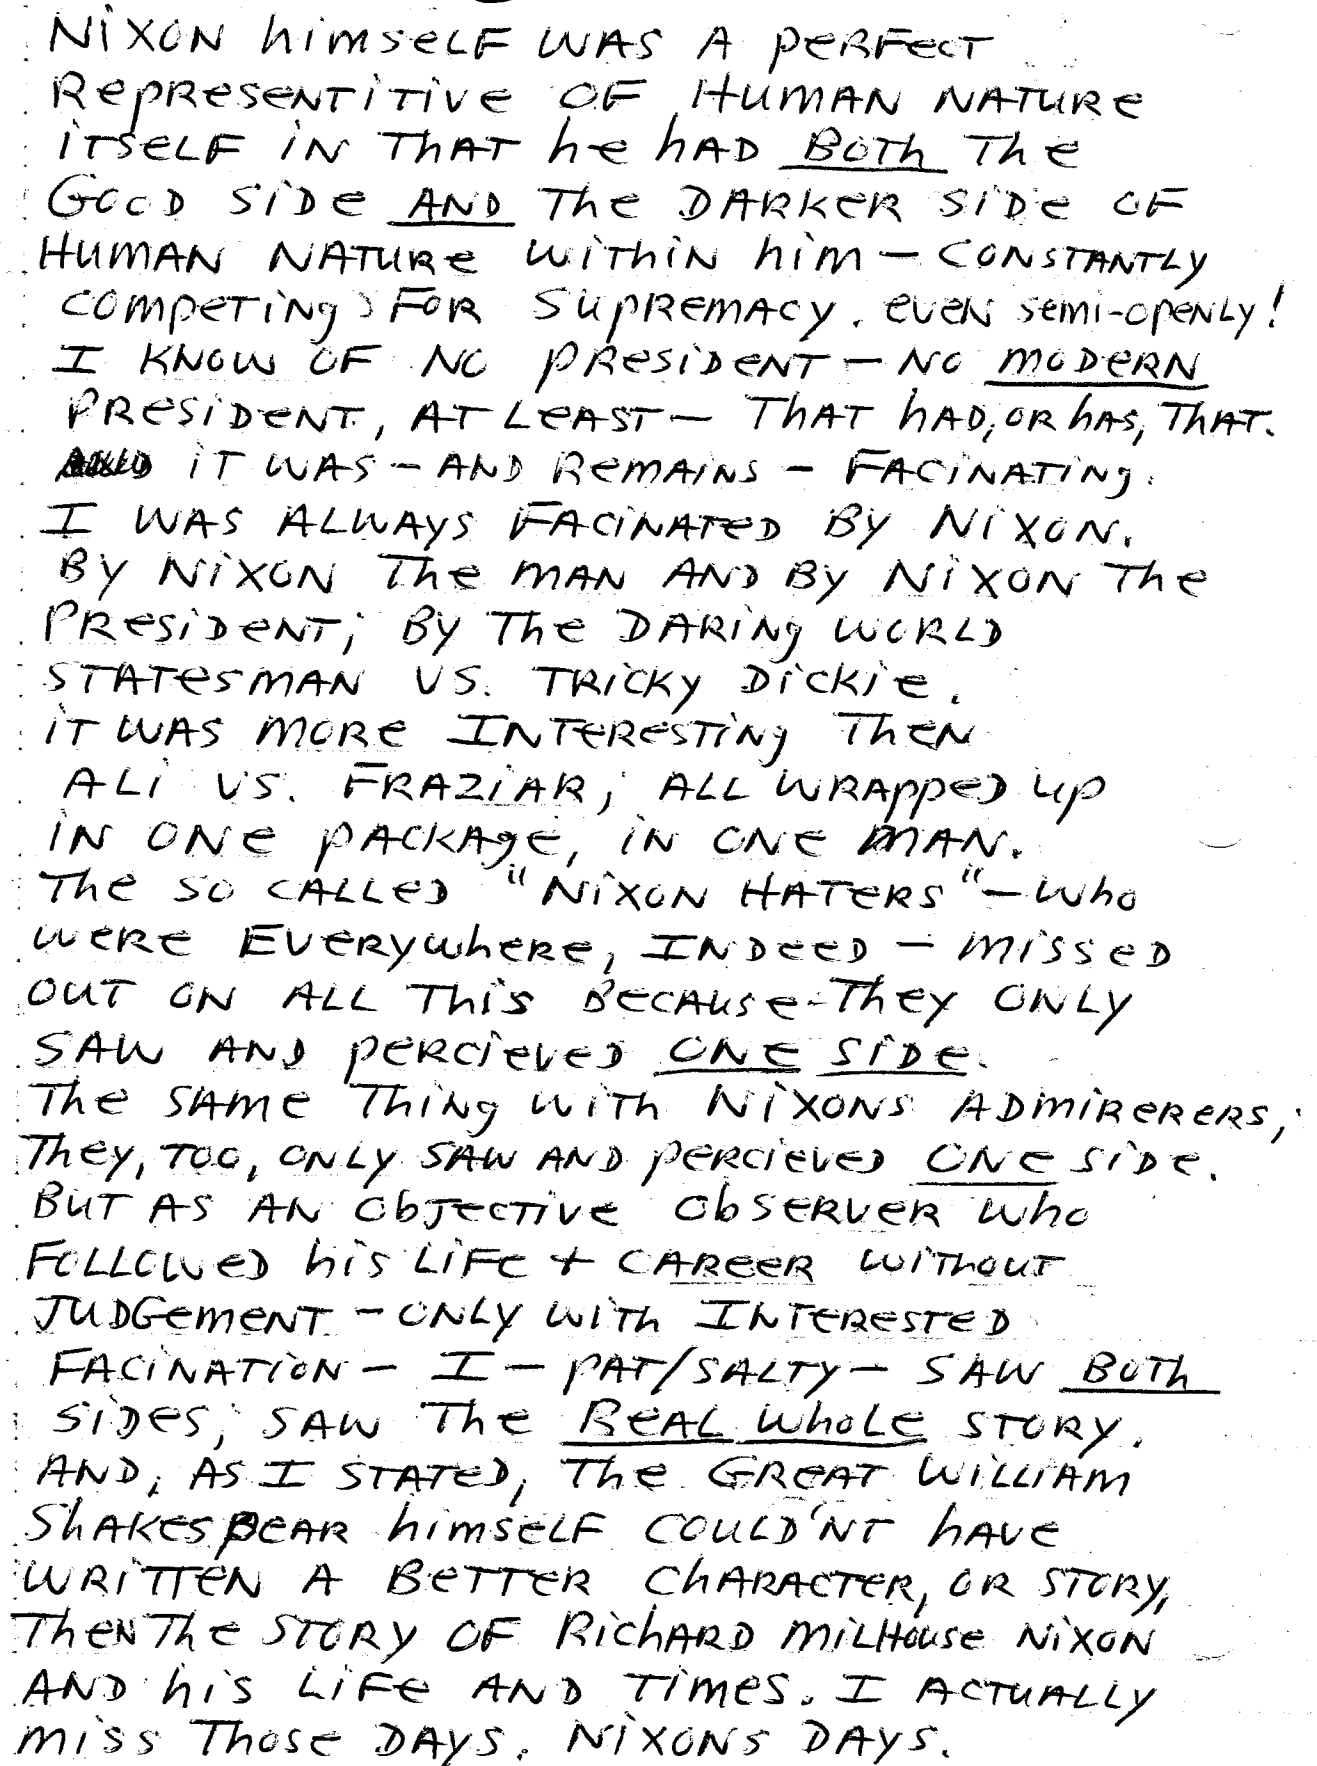 NIXON himSELF WAS A PERFECT
REPRESENTITIVE OF HUMAN NATURE
ITSELF IN THAT he hAD BOTH THE
GOOD SIDE AND THE DARKER SIDE OF
HUMAN NATURE WITHIN him — CONSTANTLY
COMPETING FOR SUPREMACY. EVEN SEMI-OPENLY!
I KNOW OF NO PRESIDENT — NO MODERN
PRESIDENT, AT LEAST — THAT hAD, OR hAS, THAT.
IT WAS — AND REMAINS — FACINATING.
I WAS ALWAYS FACINATED BY NIXON.
BY NIXON THE MAN AND BY NIXON THE
PRESIDENT; BY THE DARING WORLD
STATESMAN VS. TRICKY DICKIE.
IT WAS MORE INTERESTING THEN
ALI VS. FRAZIAR; ALL WRAPPED UP
IN ONE PACKAGE, IN ONE MAN.
THE SO CALLED "NIXON HATERS" — WhO
WERE EVERYWhERE, INDEED — MISSED
OUT ON ALL THIS BECAUSE THEY ONLY
SAW AND PERCIEVED ONE SIDE.
THE SAME THING WITH NIXONS ADMIRERERS;
THEY, TOO, ONLY SAW AND PERCIEVED ONE SIDE.
BUT AS AN ObJECTIVE ObSERVER WhO
FOLLOWED hIS LIFE + CAREER WITHOUT
JUDGEMENT — ONLY WITH INTERESTED
FACINATION — I — PAT/SALTY — SAW BOTH
SIDES; SAW THE REAL WhOLE STORY.
AND, AS I STATED, THE GREAT WILLIAM
ShAKESPEAR himSELF COULD'NT hAVE
WRITTEN A BETTER ChARACTER, OR STORY,
THEN THE STORY OF RIChARD MILHOUSE NIXON
AND hIS LIFE AND TIMES. I ACTUALLY
MISS THOSE DAYS. NIXONS DAYS.